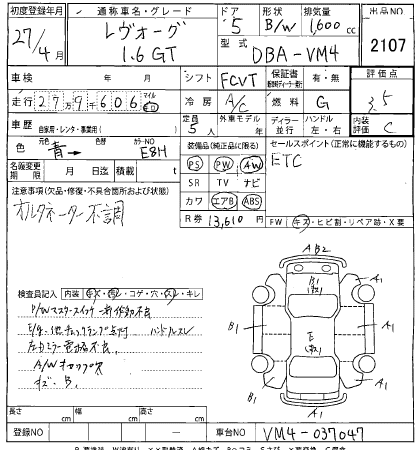 初度登録年月 通称車名・グレード ドア 形状 排気量 出品NO
27/4月 レヴォーグ 1.6GT 5 B/W 1,600cc 2107
型式 DBA-VM4
車検 年 月 シフト FCVT 保証書 有・無 評価点
走行 27万9千606 マイル km 冷房 A/C 燃料 G 3.5
車歴 自家用・レンタ・事業用( ) 定員 5人 外車モデル 年 ディーラー 並行 ハンドル 左・右 内装評価 C
色 青→ 色替 カラーNO E8H 装備品(純正品に限る) セールスポイント(正常に機能するもの)
PS PW AW ETC
名義変更期限 月 日 積載 t SR TV ナビ
注意事項(欠品・修復・不具合箇所および状態) カワ エアB ABS
オルタネーター不調 R券 13,610円 FW キズ・ヒビ割・リペア跡・X要
検査員記入 内装 キズ・コゲ・穴・キレ
P/Wマスタースイッチ一部作動不良
E/g チェックランプ点灯 ハンドルスレ
左ドアミラー電格不良
A/W
キズ・B.
AB2
B1
A1
A1
B1
E
B1
A1
A1
A1
長さ cm 幅 cm 高さ cm
登録NO — 車台NO VM4-037047